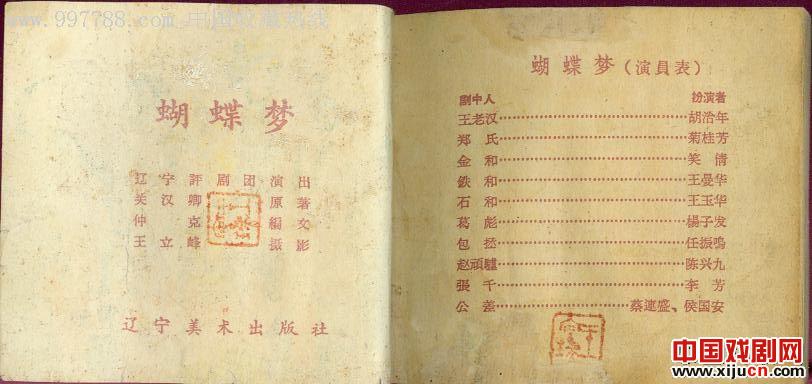 www.997788.com 中国收藏热线
蝴蝶梦
辽宁評剧团演出
关汉卿原著
仲克編文
王立峰摄影
辽宁美术出版社
蝴蝶梦(演員表)
劇中人 扮演者
王老汉……胡浍年
郑氏……菊桂芳
金和……笑倩
鉄和……王曼华
石和……王玉华
葛彪……楊子发
包拯……任振鳴
赵頑驢……陈兴九
張千……李芳
公差……蔡連盛、侯国安
中国戏剧网
www.xijucn.com